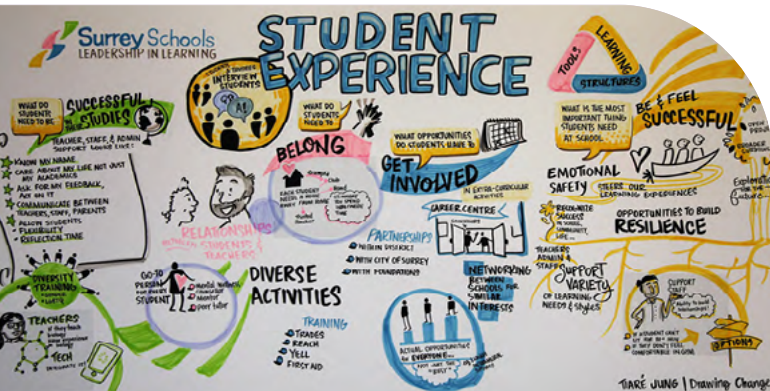 Surrey Schools
LEADERSHIP IN LEARNING
STUDENT
EXPERIENCE
INTERVIEW
STUDENTS
TOOLS
LEARNING
STRUCTURES
WHAT DO
STUDENTS
NEED TO BE
SUCCESSFUL
STUDIES
TEACHER, STAFF, & ADMIN
SUPPORT LOOKS LIKE:
KNOW MY NAME
CARE ABOUT MY LIFE NOT JUST
MY ACADEMICS
ASK FOR MY FEEDBACK,
ACT ON IT
COMMUNICATE BETWEEN
TEACHERS, STAFF, PARENTS
FLEXIBILITY
REFLECTION TIME
DIVERSITY
TRAINING
TEACHERS
TECH
WHAT DO
STUDENTS
NEED TO
BELONG
EACH STUDENT
NEEDS A
RELATIONSHIPS
BETWEEN STUDENTS &
TEACHERS
GO-TO
PERSON
FOR EVERY
STUDENT
Mentor
peer tutor
DIVERSE
ACTIVITIES
TRAINING
TRADES
REACH
YELL
FIRST AID
WHAT OPPORTUNITIES
DO STUDENTS HAVE TO
GET
INVOLVED
IN EXTRA-CURRICULAR
ACTIVITIES
CAREER CENTRE
PARTNERSHIPS
WITHIN DISTRICT
WITH CITY OF SURREY
WITH FOUNDATIONS
NETWORKING
BETWEEN
SCHOOLS FOR
SIMILAR
INTERESTS
ACTUAL OPPORTUNITIES
for EVERYONE...
NOT JUST THE
"BEST"
WHAT IS THE MOST
IMPORTANT THING
STUDENTS NEED
AT SCHOOL
BE & FEEL
SUCCESSFUL
EMOTIONAL
SAFETY
STEERS OUR
LEARNING EXPERIENCES
RECOGNIZE
SUCCESS
IN SCHOOL,
COMMUNITY,
LIFE...
OPPORTUNITIES TO BUILD
RESILIENCE
TEACHERS
ADMIN &
STAFF
SUPPORT
VARIETY
OF LEARNING
NEEDS & styles
SUPPORT
STAFF
Ability to build
relationships!
IF A STUDENT CAN'T
COMFORTABLE IN GYM
OPTIONS
TIARÉ JUNG | Drawing Change